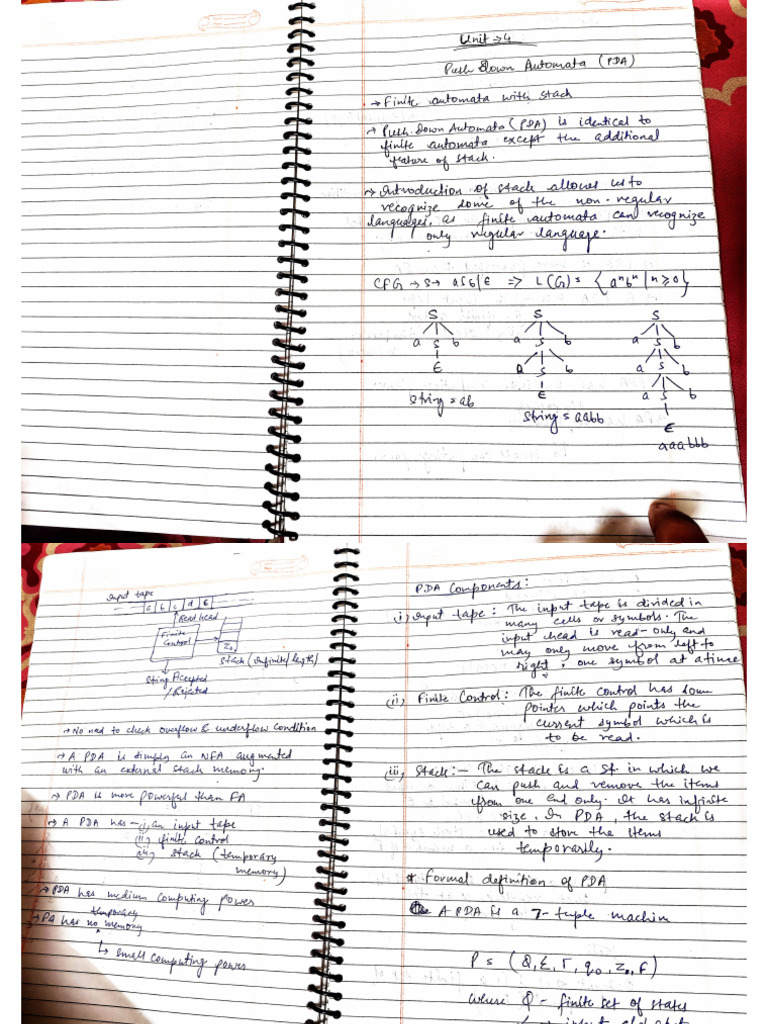 Unit → 4
Push Down Automata (PDA)
→ Finite automata with stack
→ Push-Down Automata (PDA) is identical to
finite automata except the additional
feature of stack.
→ Introduction of stack allows us to
recognize some of the non-regular
languages, as finite automata can recognize
only regular language.
CFG → S → aSb/ε => L(G) = {aⁿbⁿ | n ≥ 0}
S
a S b
ε
String = ab
S
a S b
a S b
ε
String = aabb
S
a S b
a S b
a S b
ε
aaabbb
Input tape
a b c d ε
Read head
Finite
Control
Z₀
Stack (Infinite length)
String Accepted
/Rejected
→ No need to check overflow & underflow condition
→ A PDA is simply an NFA augmented
with an external stack memory.
→ PDA is more powerful than FA
→ A PDA has - (i) an input tape
(ii) finite control
(iii) stack (temporary
memory)
→ PDA has medium computing power
temporary
→ FA has no memory
↳ small computing power
PDA Components:
(i) Input tape: The input tape is divided in
many cells or symbols. The
input head is read-only and
may only move from left to
right, one symbol at a time
(ii) Finite Control: The finite control has some
pointer which points the
current symbol which is
to be read.
(iii) Stack:- The stack is a St. in which we
can push and remove the items
from one end only. It has infinite
size. In PDA, the stack is
used to store the items
temporarily.
* Formal definition of PDA
A PDA is a 7-tuple machine
P = (Q, Σ, Γ, q₀, Z₀, F)
where Q - finite set of states